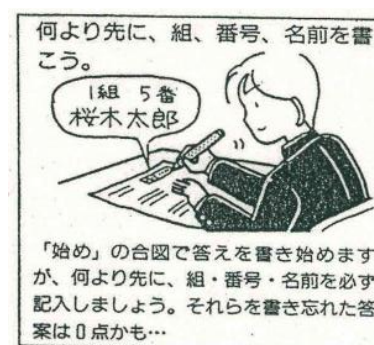 何より先に、組、番号、名前を書
こう。
1組 5番
桜木太郎
「始め」の合図で答えを書き始めます
が、何より先に、組・番号・名前を必ず
記入しましょう。それらを書き忘れた答
案は0点かも…